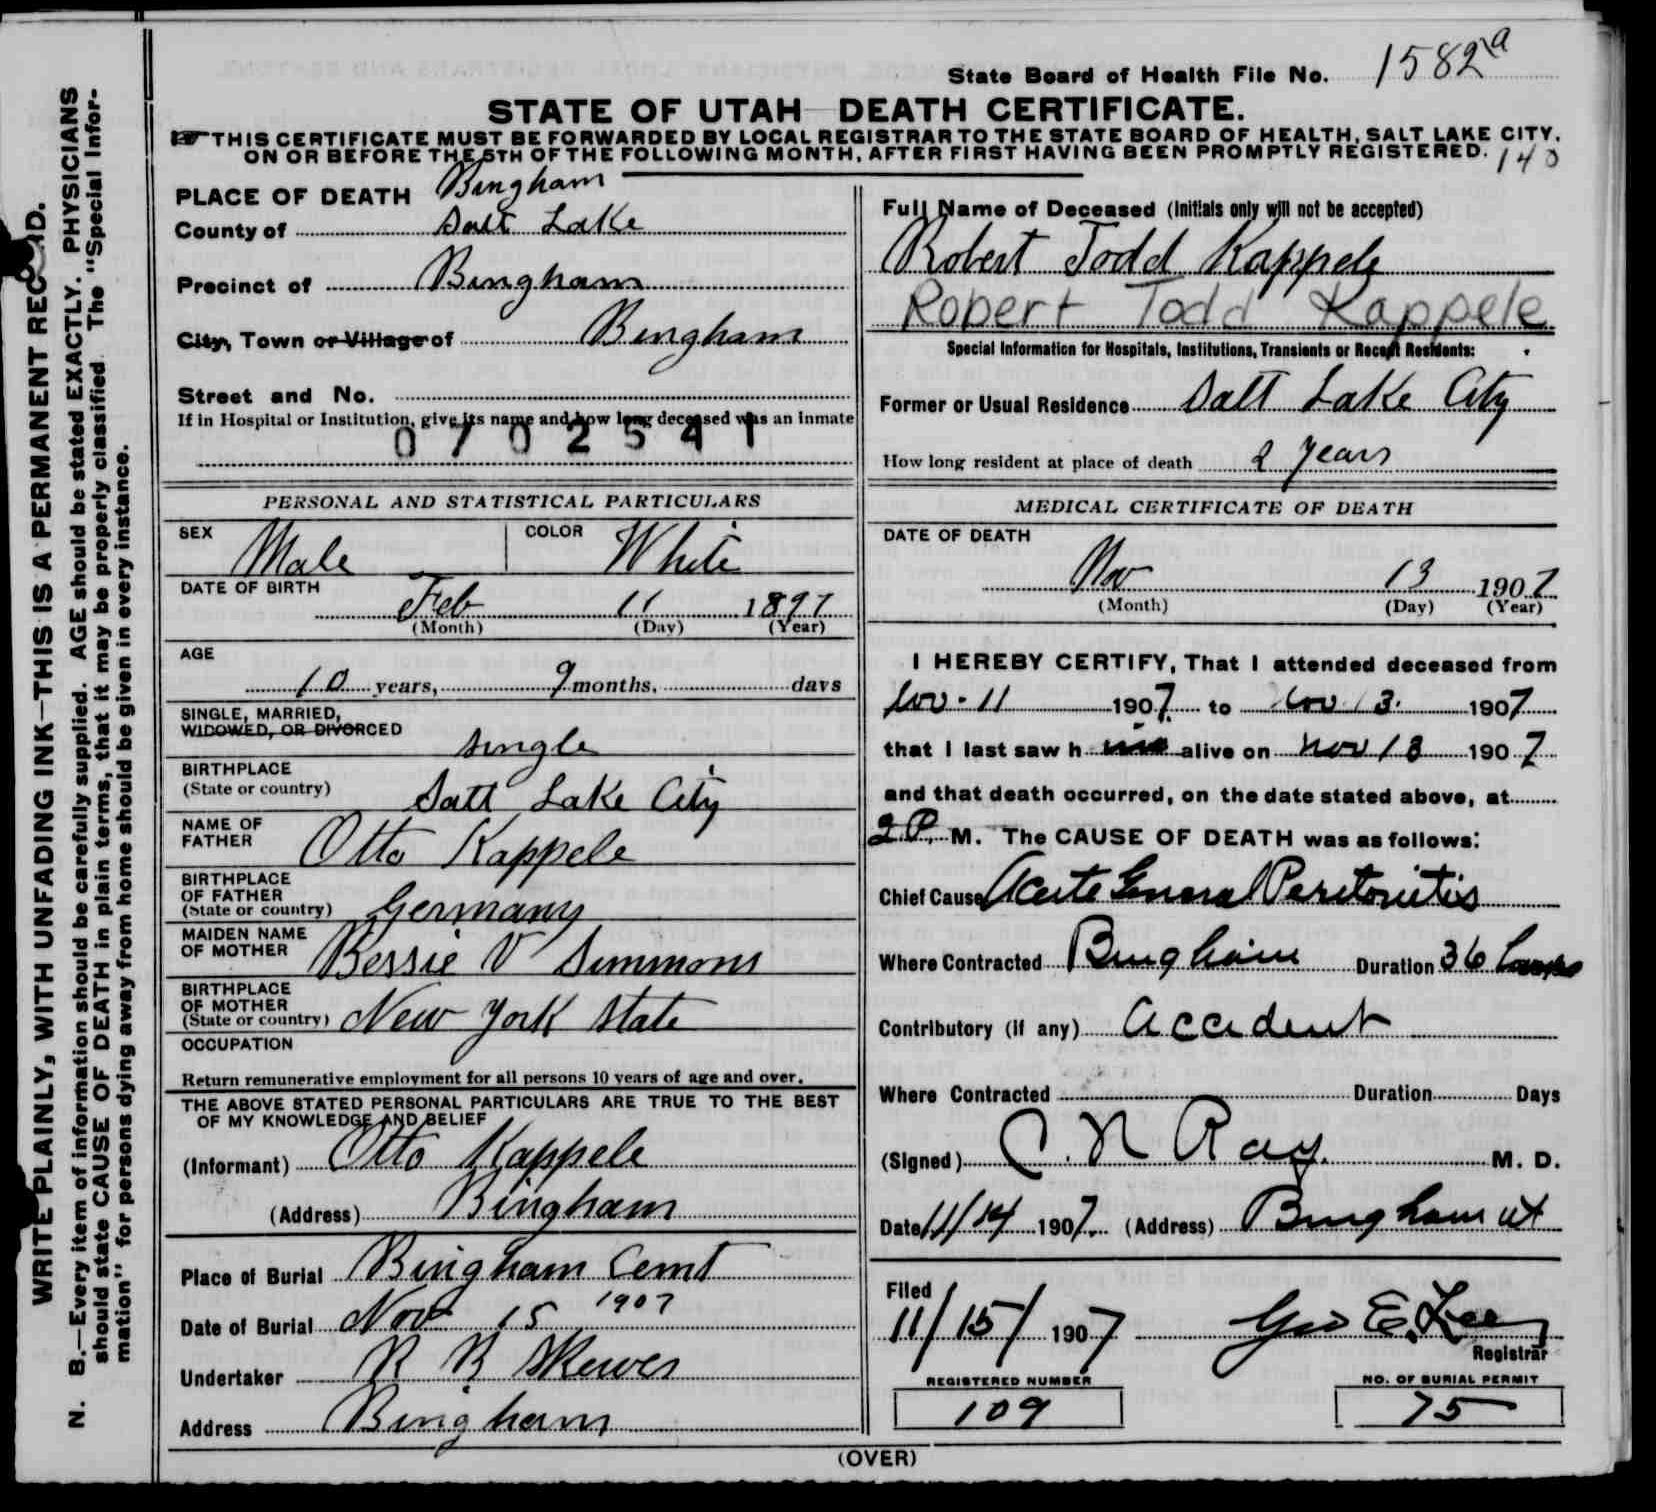 State Board of Health File No. 1582a
STATE OF UTAH DEATH CERTIFICATE.
THIS CERTIFICATE MUST BE FORWARDED BY LOCAL REGISTRAR TO THE STATE BOARD OF HEALTH, SALT LAKE CITY,
ON OR BEFORE THE 5TH OF THE FOLLOWING MONTH, AFTER FIRST HAVING BEEN PROMPTLY REGISTERED.
140
WRITE PLAINLY, WITH UNFADING INK—THIS IS A PERMANENT RECORD.
N. B.—Every item of information should be carefully supplied. AGE should be stated EXACTLY. PHYSICIANS
should state CAUSE OF DEATH in plain terms, that it may be properly classified. The "Special Infor-
mation" for persons dying away from home should be given in every instance.
PLACE OF DEATH Bingham
County of Salt Lake
Precinct of Bingham
City, Town or Village of Bingham
Street and No.
If in Hospital or Institution, give its name and how long deceased was an inmate
0702541
PERSONAL AND STATISTICAL PARTICULARS
SEX Male COLOR White
DATE OF BIRTH
Feb 11 1897
(Month) (Day) (Year)
AGE
10 years, 9 months, days
SINGLE, MARRIED,
WIDOWED, OR DIVORCED
single
BIRTHPLACE
(State or country) Salt Lake City
NAME OF
FATHER Otto Kappele
BIRTHPLACE
OF FATHER
(State or country) Germany
MAIDEN NAME
OF MOTHER Bessie V Simmons
BIRTHPLACE
OF MOTHER
(State or country) New York State
OCCUPATION
Return remunerative employment for all persons 10 years of age and over.
THE ABOVE STATED PERSONAL PARTICULARS ARE TRUE TO THE BEST
OF MY KNOWLEDGE AND BELIEF
(Informant) Otto Kappele
(Address) Bingham
Place of Burial Bingham Cemt
Date of Burial Nov 15 1907
Undertaker R R Skewes
Address Bingham
Full Name of Deceased (Initials only will not be accepted)
Robert Todd Kappele
Robert Todd Kappele
Special Information for Hospitals, Institutions, Transients or Recent Residents:
Former or Usual Residence Salt Lake City
How long resident at place of death 2 years
MEDICAL CERTIFICATE OF DEATH
DATE OF DEATH
Nov 13 1907
(Month) (Day) (Year)
I HEREBY CERTIFY, That I attended deceased from
Nov-11 1907 to Nov 13. 1907
that I last saw him alive on Nov 13 1907
and that death occurred, on the date stated above, at
2 P. M. The CAUSE OF DEATH was as follows:
Chief Cause Acute General Peritonitis
Where Contracted Bingham Duration 36 hours
Contributory (if any) Accident
Where Contracted Duration Days
(Signed) C. N Ray. M. D.
Date 11/14 1907. (Address) Bingham ut
Filed
11/15/1907 Geo E. Lee
Registrar
REGISTERED NUMBER
109
NO. OF BURIAL PERMIT
75
(OVER)